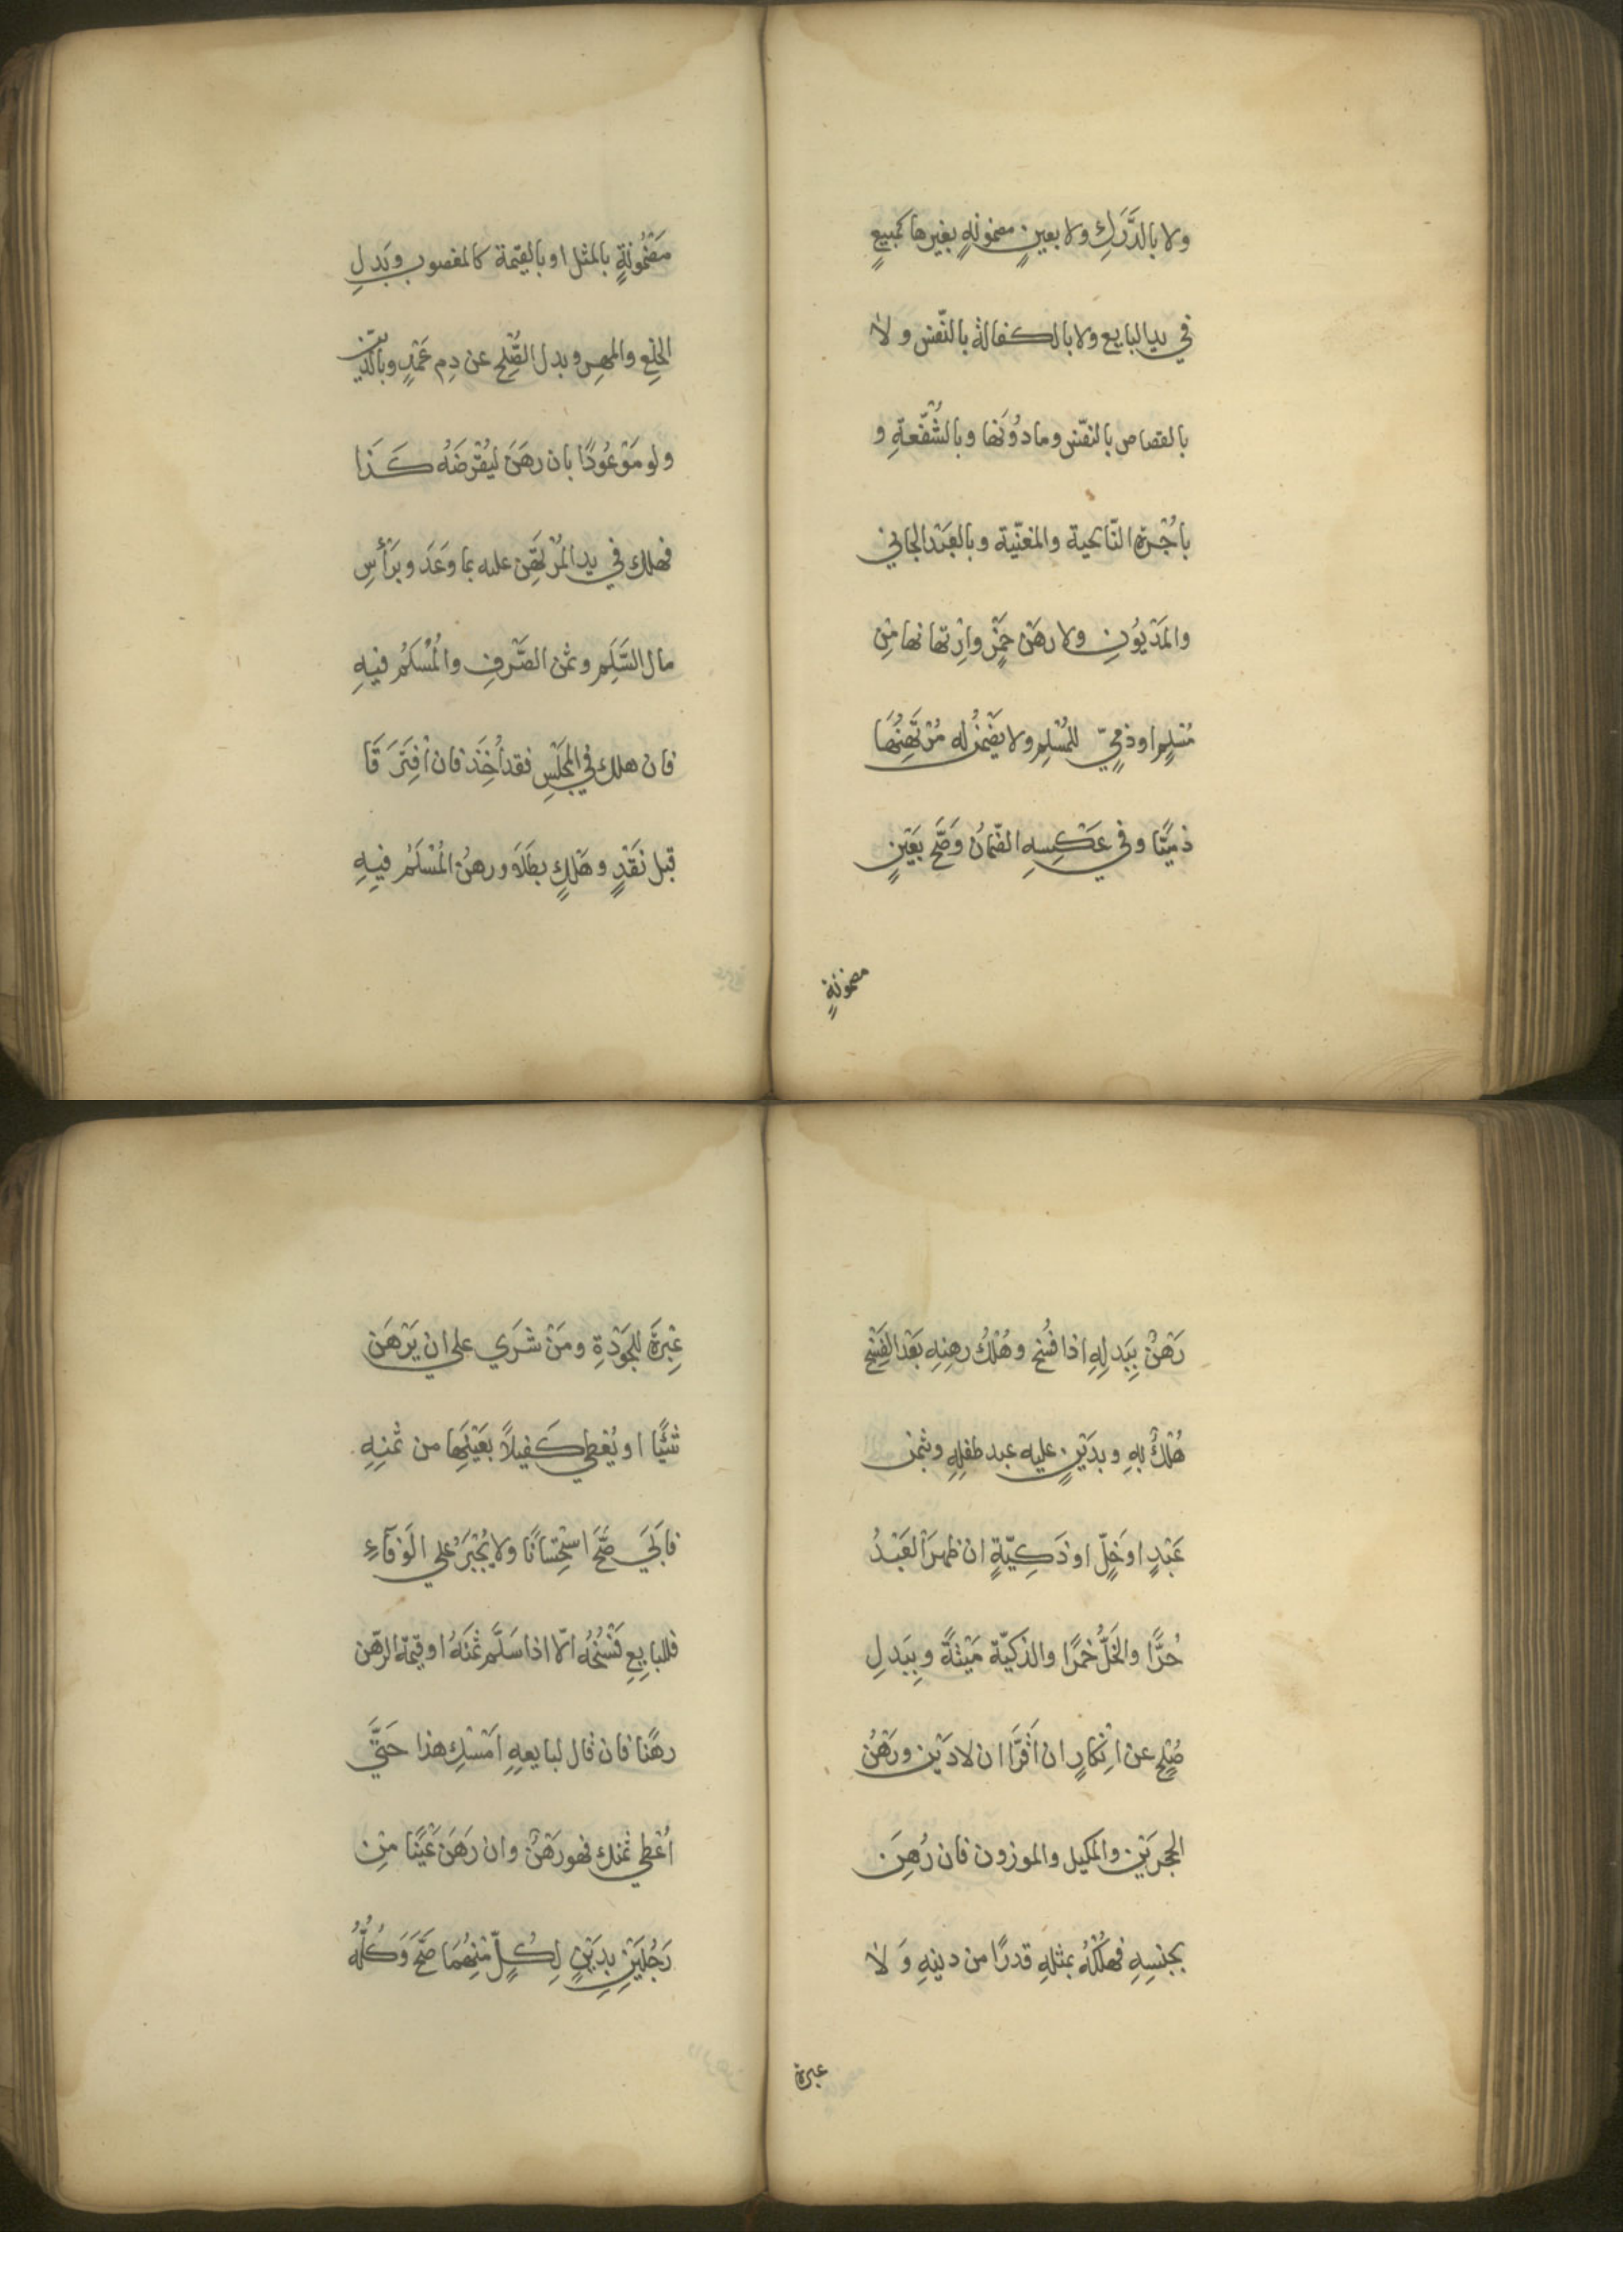 ولا بالدَّرَكِ ولا بعينٍ مضمونةٍ بغيرها كمبيعٍ
في يد البايع ولا بالكفالة بالنّفس ولا
بالقصاص بالنفس وما دُوْنَها وبالشُّفْعةِ و
باُجْرة النّايحية والمغنّية وبالعَبْد الجاني
والمَدْيُوْنِ ولا رهْن خَمْرٍ وارْتهانها مِنْ
مُسْلِمٍ او ذميٍّ للمُسْلِمِ ولا يَضْمَنُ له مُرْتَهِنُهَا
ذميًّا وفي عَكْسِهِ الضّمانُ وَصَحَّ بعَيْنٍ
مضمونةٍ
مَضْمُوْنَةٍ بالمثل او بالقيمة كالمغصوب وبَدلِ
الخلعِ والمهرِ وبدل الصُّلْحِ عن دمِ عَمْدٍ وبالدَّيْن
ولو مَوْعُوْدًا بان رهَنَ ليُقْرِضَهُ كَذا
فهلك في يد المُرْتَهِن عليه بما وَعَدَ وبَرَأْسِ
مال السَّلَمِ وثمن الصَّرْفِ والمُسْلَمُ فيهِ
فان هلك في المَجْلِسِ فقد اُخِذَ فان اُفْتَرَقَا
قبل نَقْدٍ وهَلْكٍ بطَلَا ورهنُ المُسْلَمُ فيهِ
رَهْنٌ ببَدلِهِ اذا فُسِخَ وهُلْكُ رهنِهِ بَعْد الفَسْخِ
هُلْكٌ بهِ وبدَيْنٍ عليه عبد طفلِهِ وبثمن
عَبْدٍ او خَلٍّ او ذَكِيّةٍ ان ظهرَ العَبْدُ
حُرًّا والخَلُّ خمرًا والذكيّة مَيْتَةً وبِبَدلِ
صُلْحٍ عن اِنْكارٍ ان اَقَرَّا ان لا دَيْن ورَهْنُ
الحجرَيْن والمكيل والموزون فان رُهِنَ
بجنسِهِ فهُلْكُهُ بمثلِهِ قدرًا من دينهِ وَلا
عبرة
عِبْرَةَ للجَوْدةِ ومَنْ شَرَي علي ان يَرْهَن
شَيْئًا او يُعْطي كَفيلاً بعَيْنِهَا من ثمنِهِ
فاَبَي صَحَّ اسْتِحْسَانًا ولا يُجْبَرُ علي الوَفآءِ
فللبايعِ فَسْخُهُ الّا اذا سَلَّم ثمَنَهُ او قيمة الرّهن
رهْنًا فان قال لبايعِهِ اَمْسِكْ هذا حَتَّي
اُعْطي ثمنك فهو رَهْنٌ وان رَهَنَ عَيْنًا مِنْ
رَجُلَيْنِ بدَيْنٍ لِكُلٍّ مِنْهُمَا صَحَّ وَكُلُّهُ